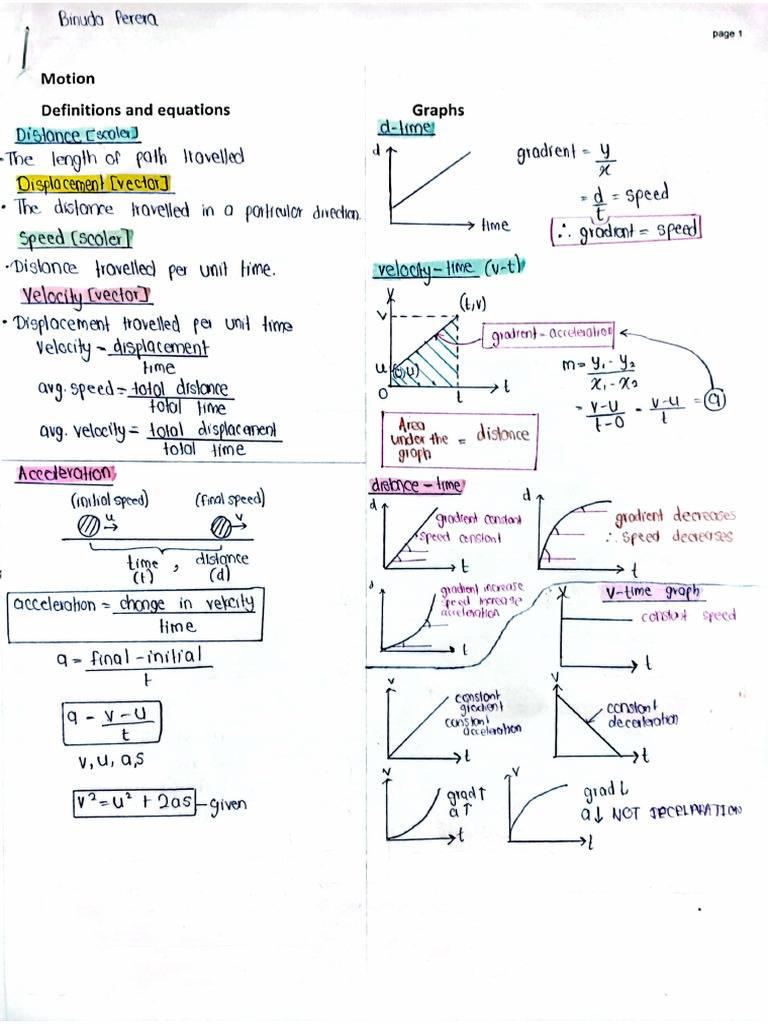 Binuda Perera
page 1
Motion
Definitions and equations
Distance [scaler]
• The length of path travelled
Displacement [vector]
• The distance travelled in a particular direction.
Speed [scaler]
• Distance travelled per unit time.
Velocity [vector]
• Displacement travelled per unit time
Velocity = displacement
time
avg. speed = total distance
total time
avg. velocity = total displacement
total time
Acceleration
(initial speed) (final speed)
u v
time , distance
(t) (d)
acceleration = change in velocity
time
a = final - initial
t
a = v - u
t
v, u, a, s
v² = u² + 2as - given
Graphs
d-time
d
time
gradient = y
x
= d = speed
t
∴ gradient = speed
velocity - time (v-t)
v
v
(t, v)
u (0, u)
0 t t
gradient - acceleration
m = y₁ - y₂
x₁ - x₂
= v-u = v-u = a
t-0 t
Area
under the = distance
graph
distance - time
d
gradient constant
speed constant
t
d
gradient decreases
∴ speed decreases
t
d
gradient increase
speed increase
acceleration
t
v-time graph
v
constant speed
t
v
constant
gradient
constant
acceleration
t
v
constant
decerleration
t
v
grad ↑
a ↑
t
v
grad ↓
a ↓ NOT DECELARATION
t